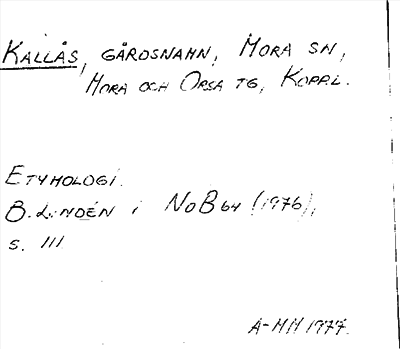 KALLÅS, GÅRDSNAMN, MORA SN,
MORA OCH ORSA TG, KOPP.L.
ETYMOLOGI.
B. LINDÉN i NoB 64 (1976),
S. 111
A-MM 1977.